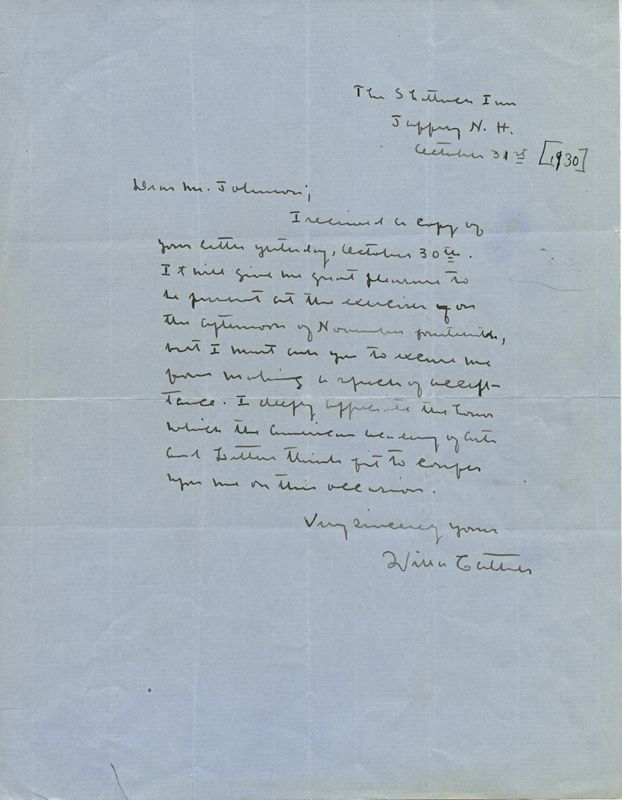 The Shattuck Inn
Jaffrey N. H.
October 31st [1930]
Dear Mr. Johnson;
I received a copy of
your letter yesterday, October 30th.
It will give me great pleasure to
be present at the exercises upon
the afternoon of November fourteenth,
but I must ask you to excuse me
from making a speech of accept-
tance. I deeply appreciate the honor
which the American Academy of Arts
and Letters thinks fit to confer
upon me on this occasion.
Very sincerely yours
Willa Cather